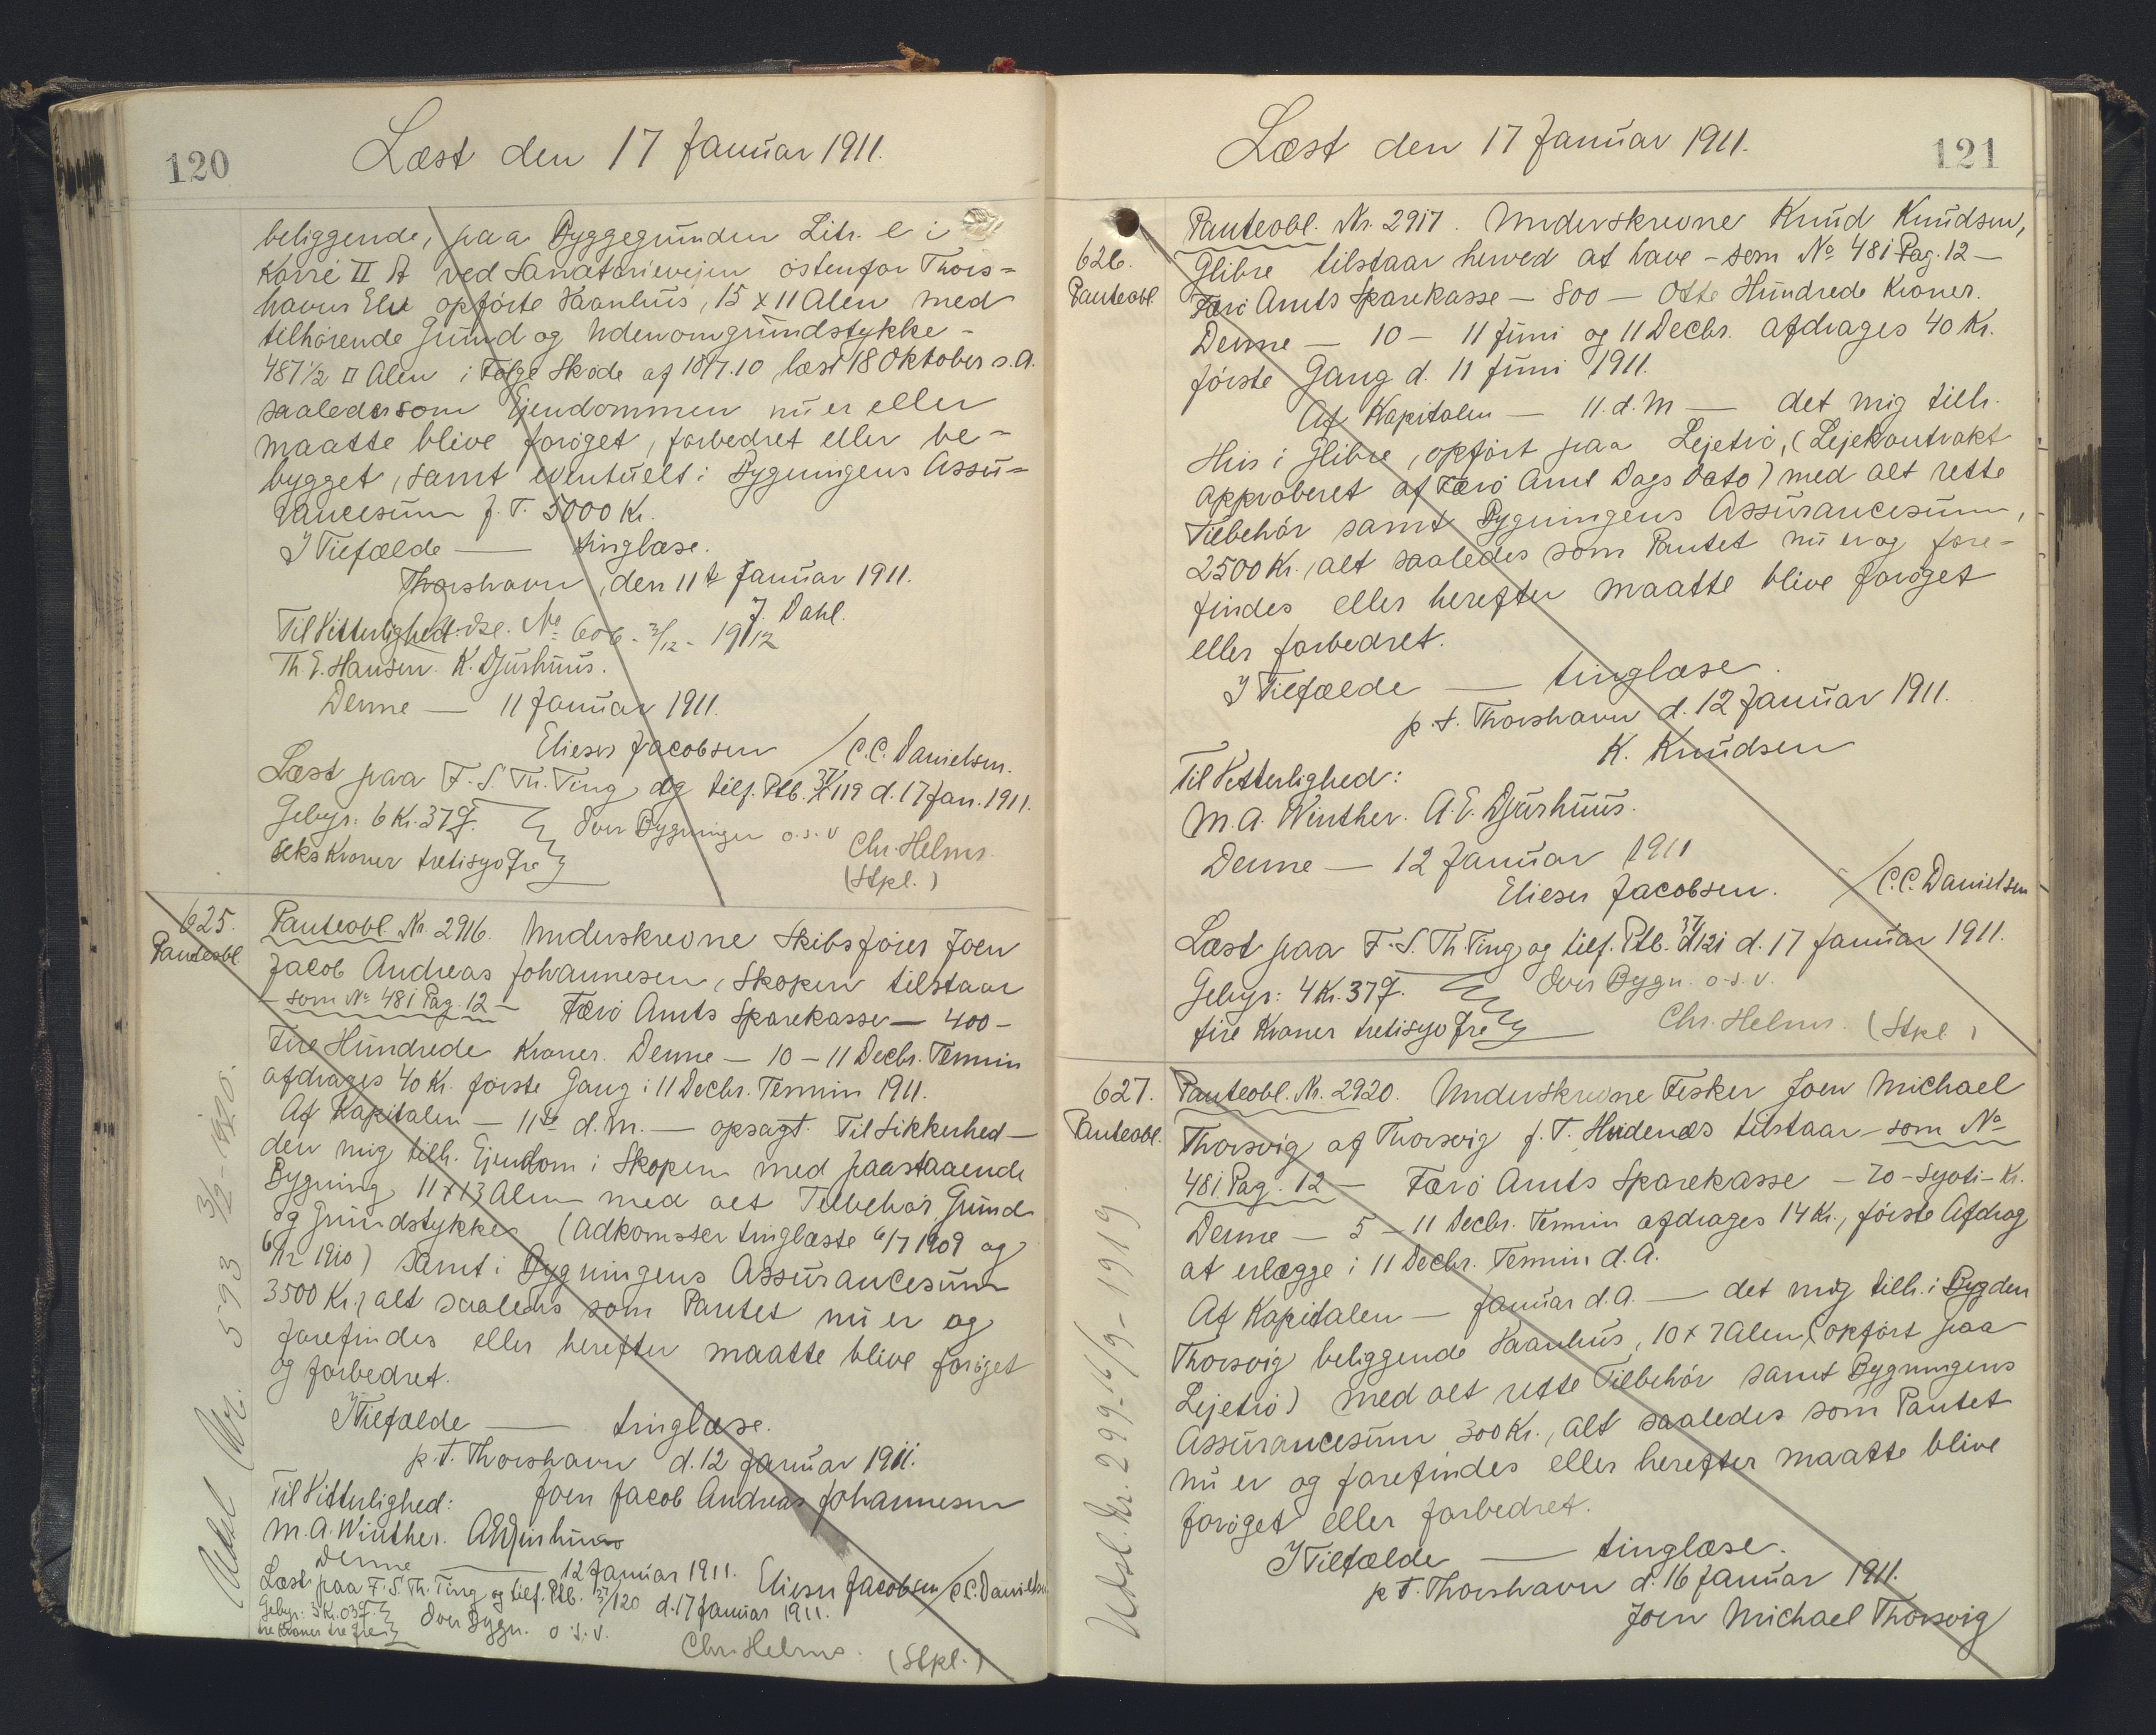 120
Læst den 17 Januar 1911.
beliggende, paa Byggegrunden Litr. e i
Karré II A ved Sanatorievejen østenfor Thors=
havns Elv opførte Vaanhus, 15 x 11 Alen med
tilhørende Grund og Udenomgrundstykke -
487 1/2 □ Alen i Følge Skøde af 18/7.10 læst 18 Oktober s.A.
saaledes som Ejendommen nu er eller
maatte blive forøget, forbedret eller be=
bygget, samt eventuelt i Bygningens Assu=
rancesum f. T. 5000 Kr.
I Tilfælde — tinglæse.
Thorshavn, den 11te Januar 1911.
J. Dahl.
Til Vitterlighed: Udsl. No 606 - 3/12 - 1912
Th. E. Hansen. K. Djurhuus.
Denne — 11 Januar 1911.
Elieser Jacobsen / C.C. Danielsen.
Læst paa F. S. Th. Ting og tilf. Ptb. 119 d. 17 Jan. 1911.
Gebyr: 6 Kr. 37 Ø. Over Bygningen o.s.v
seks Kroner tretisyv Øre Chr. Helms.
(Stpl.)
625.
Panteobl.
Panteobl. Nr. 2916. Underskrevne Skibsfører Joen
Jacob Andreas Johannesen, Skopen tilstaar
- som No 48 i Pag. 12 - Færø Amts Sparekasse — 400 -
Fire Hundrede Kroner. Denne — 10 - 11 Decbr. Termin
afdrages 40 Kr. første Gang i 11 Decbr. Termin 1911.
Af Kapitalen — 11te d.M. — opsagt. Til Sikkerhed —
den mig tilh. Ejendom i Skopen med paastaaende
Bygning 11 x 13 Alen med alt Tilbehør, Grund
og Grundstykker (Adkomster tinglæste 6/7 1909 og
6/12 1910) samt i Bygningens Assurancesum
3500 Kr., alt saaledes som Pantet nu er og
forefindes eller herefter maatte blive forøget
og forbedret.
I Tilfælde — tinglæse.
p.t. Thorshavn d. 12 Januar 1911.
Til Vitterlighed: Joen Jacob Andreas Johannesen
M. A. Winther. A.E. Djurhuus
Denne — 12 Januar 1911. Elieser Jacobsen / C.C. Danielsen
Læst paa F. S. Th. Ting og tilf. Ptb. 37/120 d. 17 Januar 1911.
Gebyr: 3 Kr. 03 Ø. Over Bygn. o.s.v.
tre Kroner tre Øre Chr. Helms. (Stpl.)
Udsl. Nr. 593 3/12 - 1920.
121
Læst den 17 Januar 1911.
626.
Panteobl.
Panteobl. Nr. 2917. Underskrevne Knud Knudsen,
Glibre tilstaar herved at have - som No 48 i Pag. 12 —
Færø Amts Sparekasse — 800 — Otte Hundrede Kroner.
Denne — 10 — 11 Juni og 11 Decbr. afdrages 40 Kr.
første Gang d. 11 Juni 1911.
Af Kapitalen — 11. d. M — det mig tilh.
Hus i Glibre, opført paa Lejetid, (Lejekontrakt
approberet af Færø Amt Dags Dato) med alt rette
Tilbehør samt Bygningens Assurancesum,
2500 Kr., alt saaledes som Pantet nu er og fore=
findes eller herefter maatte blive forøget
eller forbedret.
I Tilfælde — tinglæse.
p.t. Thorshavn d. 12 Januar 1911.
K. Knudsen
Til Vitterlighed:
M. A. Winther. A. E. Djurhuus.
Denne — 12 Januar 1911
Elieser Jacobsen. / C.C. Danielsen
Læst paa F. S. Th. Ting og tilf. Ptb. 37/121 d. 17 Januar 1911.
Gebyr: 4 Kr. 37 Ø. Over Bygn. o.s.v.
fire Kroner tretisyv Øre Chr. Helms. (Stpl.)
627.
Panteobl.
Panteobl. Nr. 2920. Underskrevne Fisker Joen Michael
Thorsvig af Thorsvig f. T. Hvidenæs tilstaar - som No
48 i Pag. 12 — Færø Amts Sparekasse — 70 - Syvti - Kr.
Denne — 5 — 11 Decbr. Termin afdrages 14 Kr., første Afdrag
at erlægge i 11 Decbr. Termin d. A.
Af Kapitalen — Januar d.A. — det mig tilh. i Bygden
Thorsvig beliggende Vaanhus, 10 x 7 Alen, (opført paa
Lejetid) med alt rette Tilbehør samt Bygningens
Assurancesum 300 Kr., alt saaledes som Pantet
nu er og forefindes eller herefter maatte blive
forøget eller forbedret.
I Tilfælde — tinglæse.
p.T. Thorshavn d. 16 Januar 1911.
Joen Michael Thorsvig
Udsl. Nr. 299 - 16/9 - 1919.